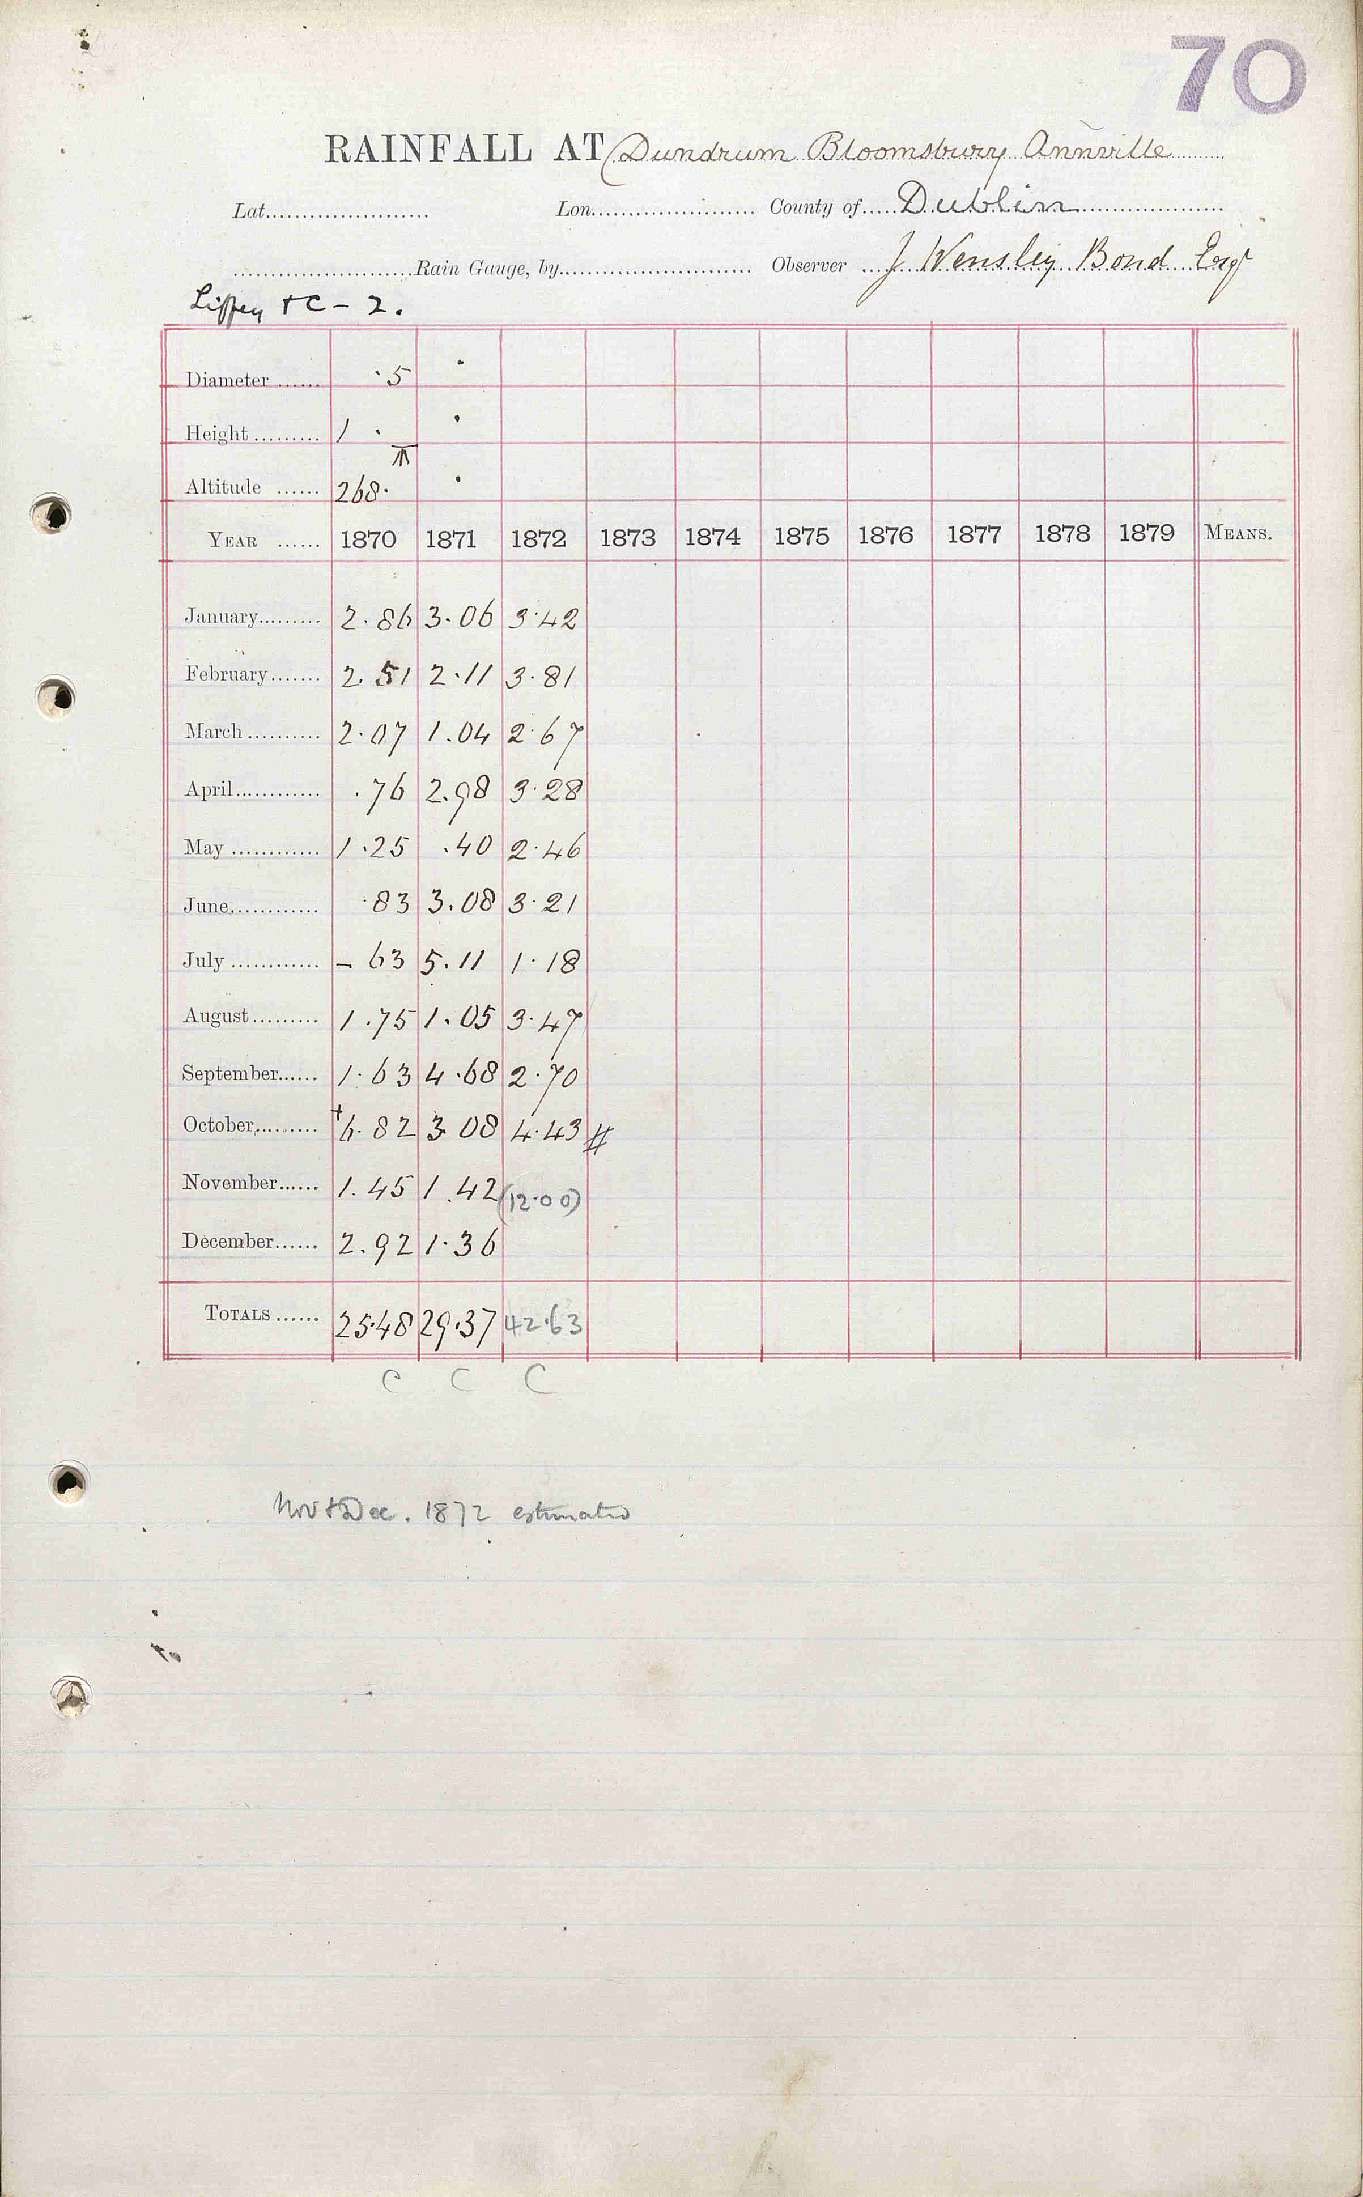 70
RAINFALL AT Dundrum Bloomsbury Annville
Lat. Lon. County of Dublin
Rain Gauge, by Observer J Wensley Bond Esqr
Liffey &C - 2.
Diameter ...... ·5 ·
Height ......... 1 · ·
Altitude ...... 268· ·
YEAR ...... 1870 1871 1872 1873 1874 1875 1876 1877 1878 1879 MEANS.
January......... 2.86 3.06 3.42
February....... 2.51 2.11 3.81
March .......... 2.07 1.04 2.67
April............ .76 2.98 3.28
May ............ 1.25 .40 2.46
June............ .83 3.08 3.21
July ............ – 63 5.11 1.18
August......... 1.75 1.05 3.47
September...... 1.63 4.68 2.70
October......... +6.82 3 08 4.43 #
November...... 1.45 1.42 (12.00)
December...... 2.92 1.36
TOTALS ...... 25.48 29.37 42.63
C C C
Nov & Dec. 1872 estimated